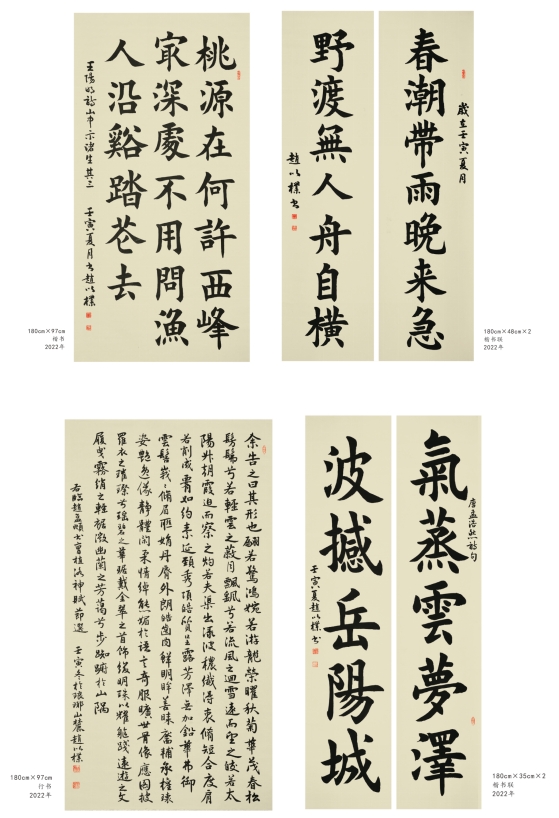 桃源在何許西峰
㝡深處不用問漁
人沿谿踏花去
王陽明詩山中示諸生其三 壬寅夏月書趙以樸
180cm×97cm
楷书
2022年
春潮帶雨晚来急
歲在壬寅夏月
野渡無人舟自横
趙以樸書
180cm×48cm×2
楷书联
2022年
余告之曰其形也翩若驚鴻婉若游龍榮曜秋菊華茂春松
髣髴兮若輕雲之蔽月飄颻兮若流風之迴雪遠而望之皎若太
陽升朝霞迫而察之灼若夫渠出淥波穠纖得衷脩短合度肩
若削成署如約素延頸秀項皓質呈露芳澤無加鉛華弗御
雲髻峩峩脩眉聯娟丹脣外朗皓齒内鮮明眸善睞靨輔承權瓌
姿艷逸儀靜體閑柔情綽態媚於語言奇服曠世骨像應圖披
羅衣之璀璨兮珥瑤碧之華琚戴金翠之首飾綴明珠以耀軀踐遠遊之文
履曳霧綃之輕裾微幽蘭之芳藹兮步踟躕於山隅
右臨趙孟頫書曹植洛神賦節選 壬寅冬於琅琊山麓趙以樸
180cm×97cm
行书
2022年
氣蒸雲夢澤
唐孟浩然詩句
波撼岳陽城
壬寅夏趙以樸書
180cm×35cm×2
楷书联
2022年